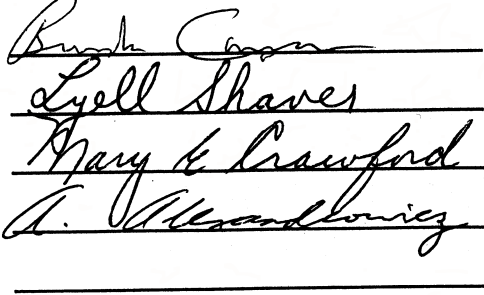 Lyell Shaver
Mary E Crawford
A. Alexandrowicz